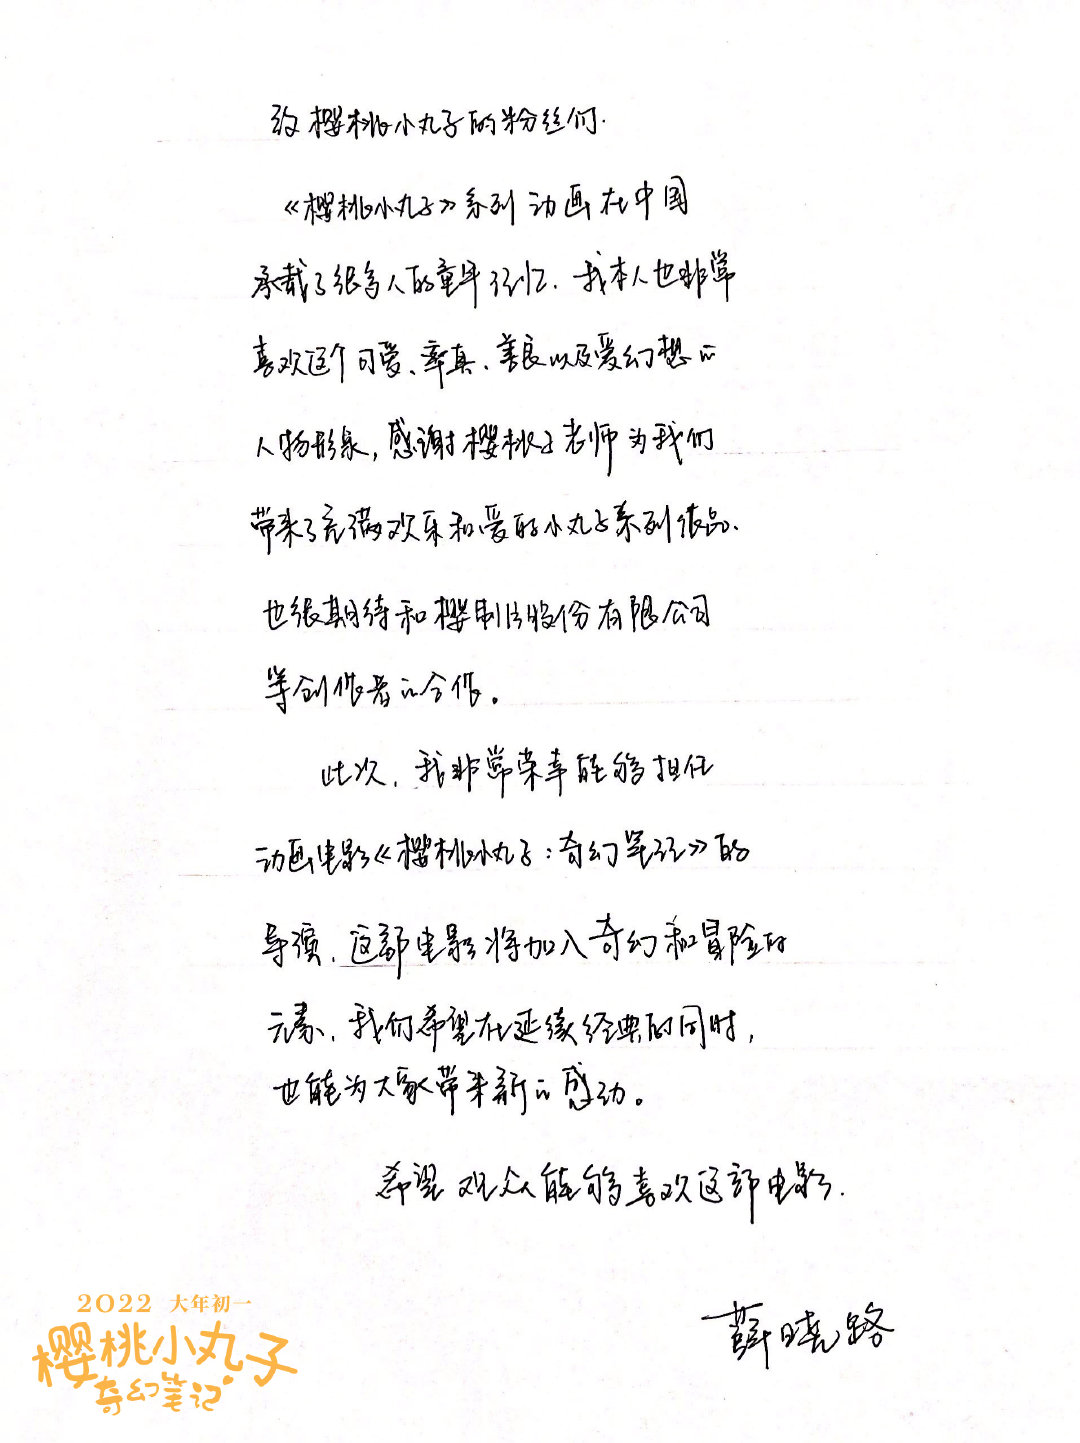 致樱桃小丸子的粉丝们.
《樱桃小丸子》系列动画在中国
承载了很多人的童年记忆.我本人也非常
喜欢这个可爱、率真、善良以及爱幻想的
人物形象,感谢樱桃子老师为我们
带来了充满欢乐和爱的小丸子系列作品.
也很期待和樱制片股份有限公司
等创作者的合作。
此次,我非常荣幸能够担任
动画电影《樱桃小丸子:奇幻笔记》的
导演,这部电影将加入奇幻和冒险的
元素、我们希望在延续经典的同时,
也能为大家带来新的感动。
希望观众能够喜欢这部电影.
薛晓路
2022 大年初一
樱桃小丸子
奇幻笔记